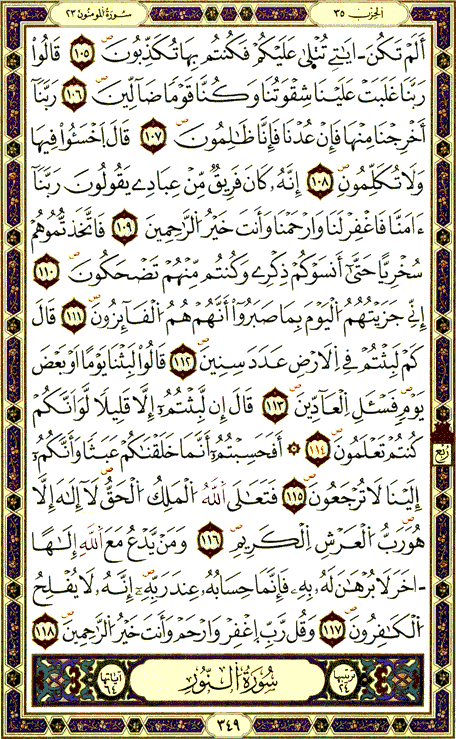 الحزب ٣٥
سورة المومنون ٢٣
أَلَمْ تَكُنَ ـايَٰتِے تُتْلَىٰ عَلَيْكُمْ فَكُنتُم بِهَا تُكَذِّبُونَ ١٠٥ قَالُوا
رَبَّنَا غَلَبَتْ عَلَيْنَا شِقْوَتُنَا وَكُنَّا قَوْمًا ضَآلِّينَ ١٠٦ رَبَّنَا
أَخْرِجْنَا مِنْهَا فَإِنْ عُدْنَا فَإِنَّا ظَٰلِمُونَ ١٠٧ قَالَ اَخْسَـُٔوا فِيهَا
وَلَا تُكَلِّمُونِ ١٠٨ إِنَّهُۥ كَانَ فَرِيقٌ مِّنْ عِبَادِے يَقُولُونَ رَبَّنَا
ءَامَنَّا فَاغْفِرْ لَنَا وَارْحَمْنَا وَأَنتَ خَيْرُ الرَّٰحِمِينَ ١٠٩ فَاتَّخَذتُّمُوهُمْ
سُخْرِيًّا حَتَّىٰٓ أَنسَوْكُمْ ذِكْرِے وَكُنتُم مِّنْهُمْ تَضْحَكُونَ ١١٠
إِنِّي جَزَيْتُهُمُ الْيَوْمَ بِمَا صَبَرُوٓا أَنَّهُمْ هُمُ الْفَآئِزُونَ ١١١ قَالَ
كَمْ لَبِثْتُمْ فِي اِلَارْضِ عَدَدَ سِنِينَ ١١٢ قَالُوا لَبِثْنَا يَوْمًا اَوْ بَعْضَ
يَوْمٍ فَسْـَٔلِ الْعَآدِّينَ ١١٣ قَالَ إِن لَّبِثْتُمُۥٓ إِلَّا قَلِيلًا لَّوَ اَنَّكُمْ
كُنتُمْ تَعْلَمُونَ ١١٤ ۞ أَفَحَسِبْتُمُۥٓ أَنَّمَا خَلَقْنَٰكُمْ عَبَثًا وَأَنَّكُمُۥٓ
ربع
إِلَيْنَا لَا تُرْجَعُونَ ١١٥ فَتَعَٰلَى اَللَّهُ الْمَلِكُ الْحَقُّ لَآ إِلَٰهَ إِلَّا
هُوَ رَبُّ الْعَرْشِ اِلْكَرِيمِ ١١٦ وَمَنْ يَّدْعُ مَعَ اَللَّهِ إِلَٰهًا
ـاخَرَ لَا بُرْهَٰنَ لَهُۥ بِهِۦ فَإِنَّمَا حِسَابُهُۥ عِندَ رَبِّهِۦٓ إِنَّهُۥ لَا يُفْلِحُ
الْكَٰفِرُونَ ١١٧ وَقُل رَّبِّ اِغْفِرْ وَارْحَمْ وَأَنتَ خَيْرُ الرَّٰحِمِينَ ١١٨
ترتيبها ٢٤
سُورَةُ النُّورِ
آياتها ٦٤
٣٤٩